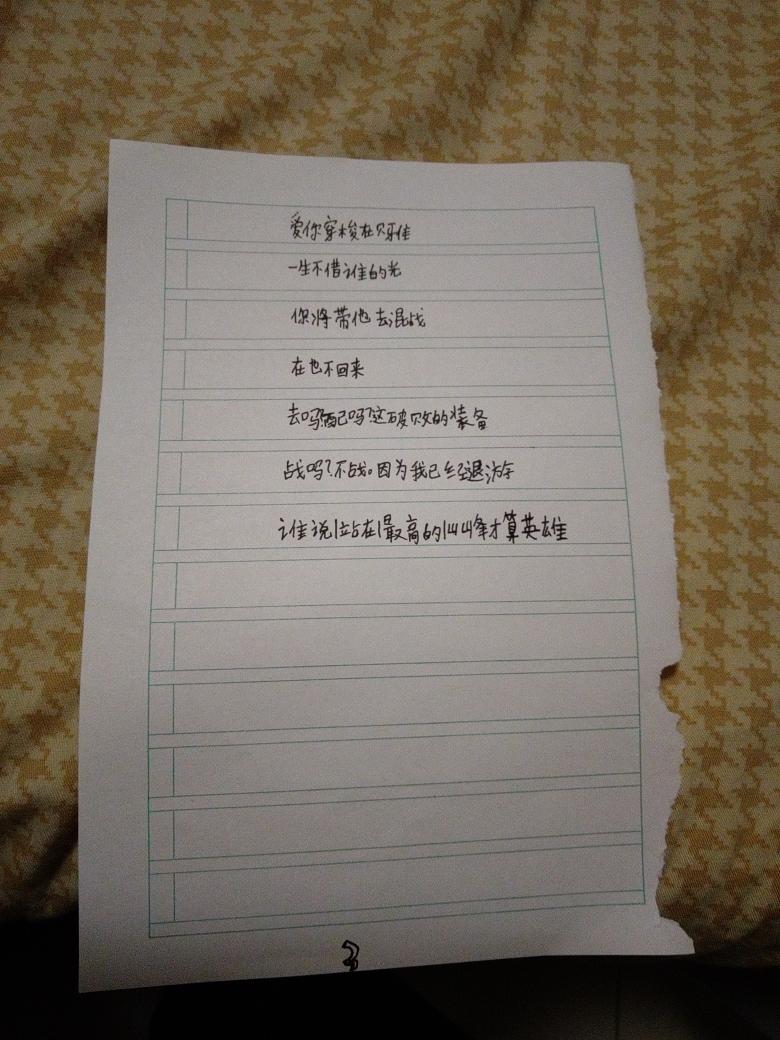 爱你穿梭在贝雅佳
一生不借谁的光
你将带他去混战
在也不回来
去吗?配吗?这破败的装备
战吗?不战。因为我已经退游
谁说站在最高的山峰才算英雄
3